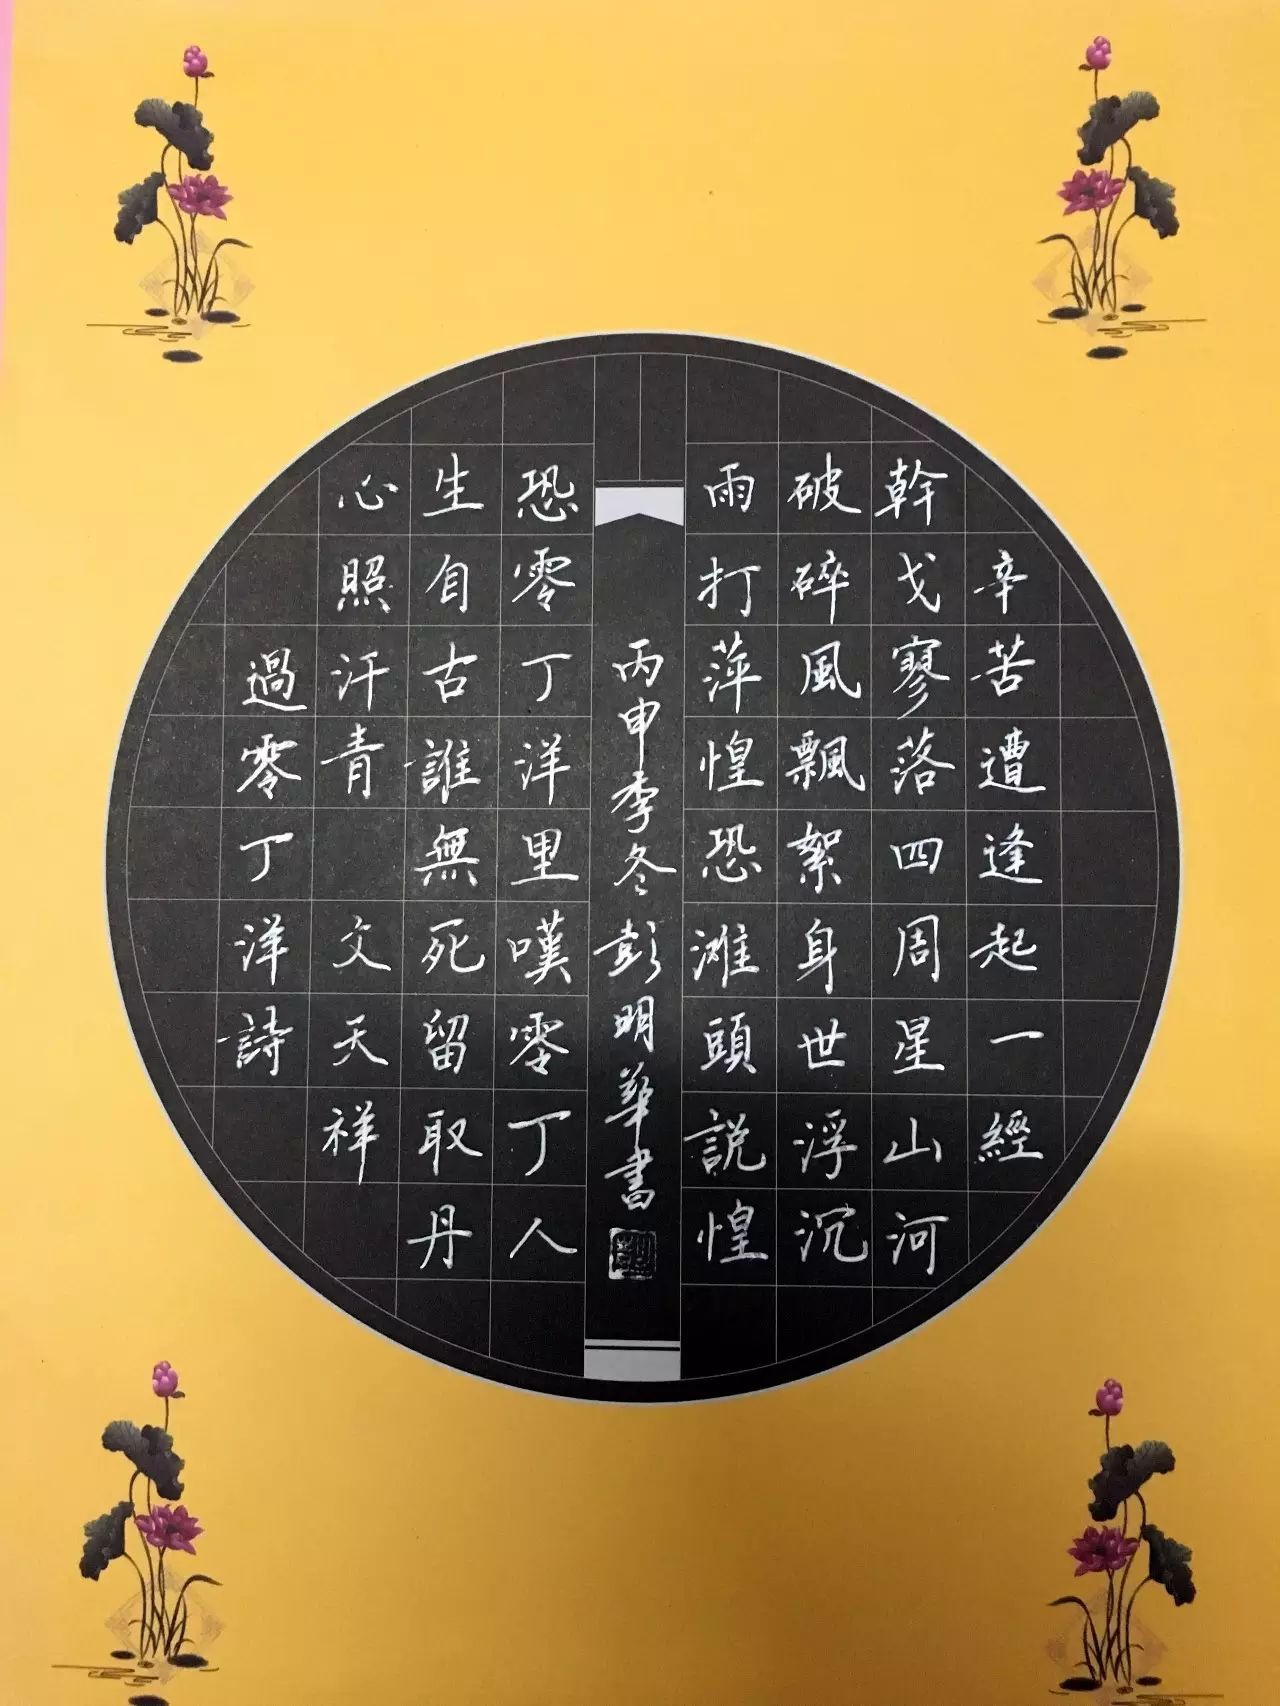 辛苦遭逢起一經
幹戈寥落四周星山河
破碎風飄絮身世浮沉
雨打萍惶恐滩頭説惶
恐零丁洋里嘆零丁人
生自古誰無死留取丹
心照汗青 文天祥
過零丁洋詩
丙申季冬彭明華書